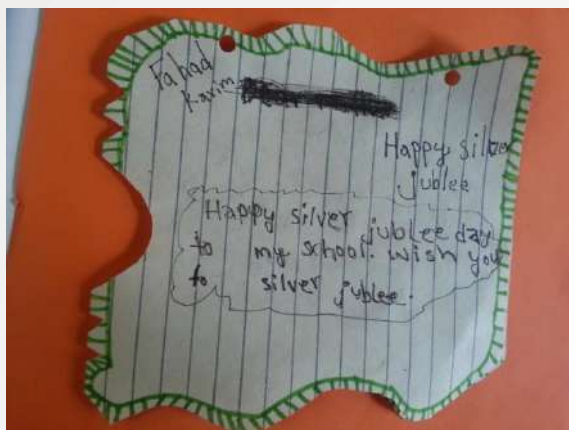 Fahad
Karim
Happy silver
jublee
Happy silver jublee day
to my school. wish you
to silver jublee.